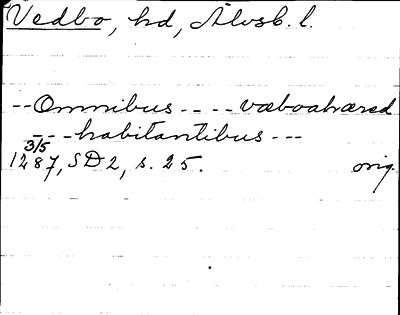 Vedbo, hd, Älvsb. l.
-- Omnibus ---- væboahæred
--- habitantibus ---
3/5
1287, SD 2, s. 25. orig.